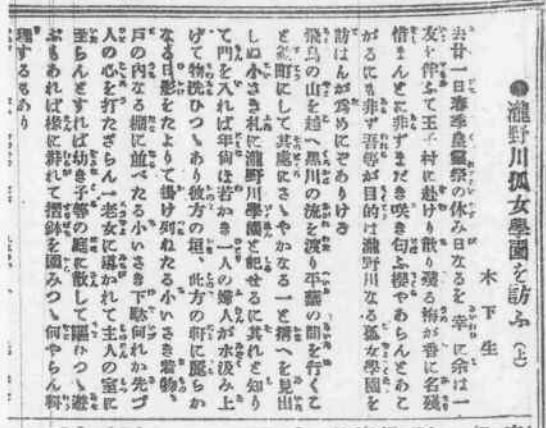 ●瀧野川孤女學園を訪ふ(上)
木下生
去廿一日春季皇靈祭の休み日なるを幸に余は一
友を伴ふて王子村に赴けり散り殘る梅が香に名殘
惜まんとに非ずまだき咲き匂ふ櫻やあらんとあこ
がるにも非ず吾等が目的は瀧野川なる孤女學園を
訪はんが爲めにぞありける
飛鳥の山を越へ黒川の流を渡り平蕪の間を行くこ
と數町にして其處にさゝやかなる一と構へを見出
しぬ小さき札に瀧野川學園と記せるに其れと知り
て門を入れば年尚ほ若かき一人の婦人が水汲み上
げて物洗ひつゝあり彼方の垣、此方の軒に麗らか
なる日影をたよりて掛け列ねたる小いさき着物、
戸の内なる棚に並べたる小いさき下駄何れか先づ
人の心を打たざらん一老女に導かれて主人の室に
至らんとすれば幼き子等の庭に散して謳ひつゝ遊
ぶもあれば椽に群れて摺鉢を圍みつゝ何やらん料
理するもあり